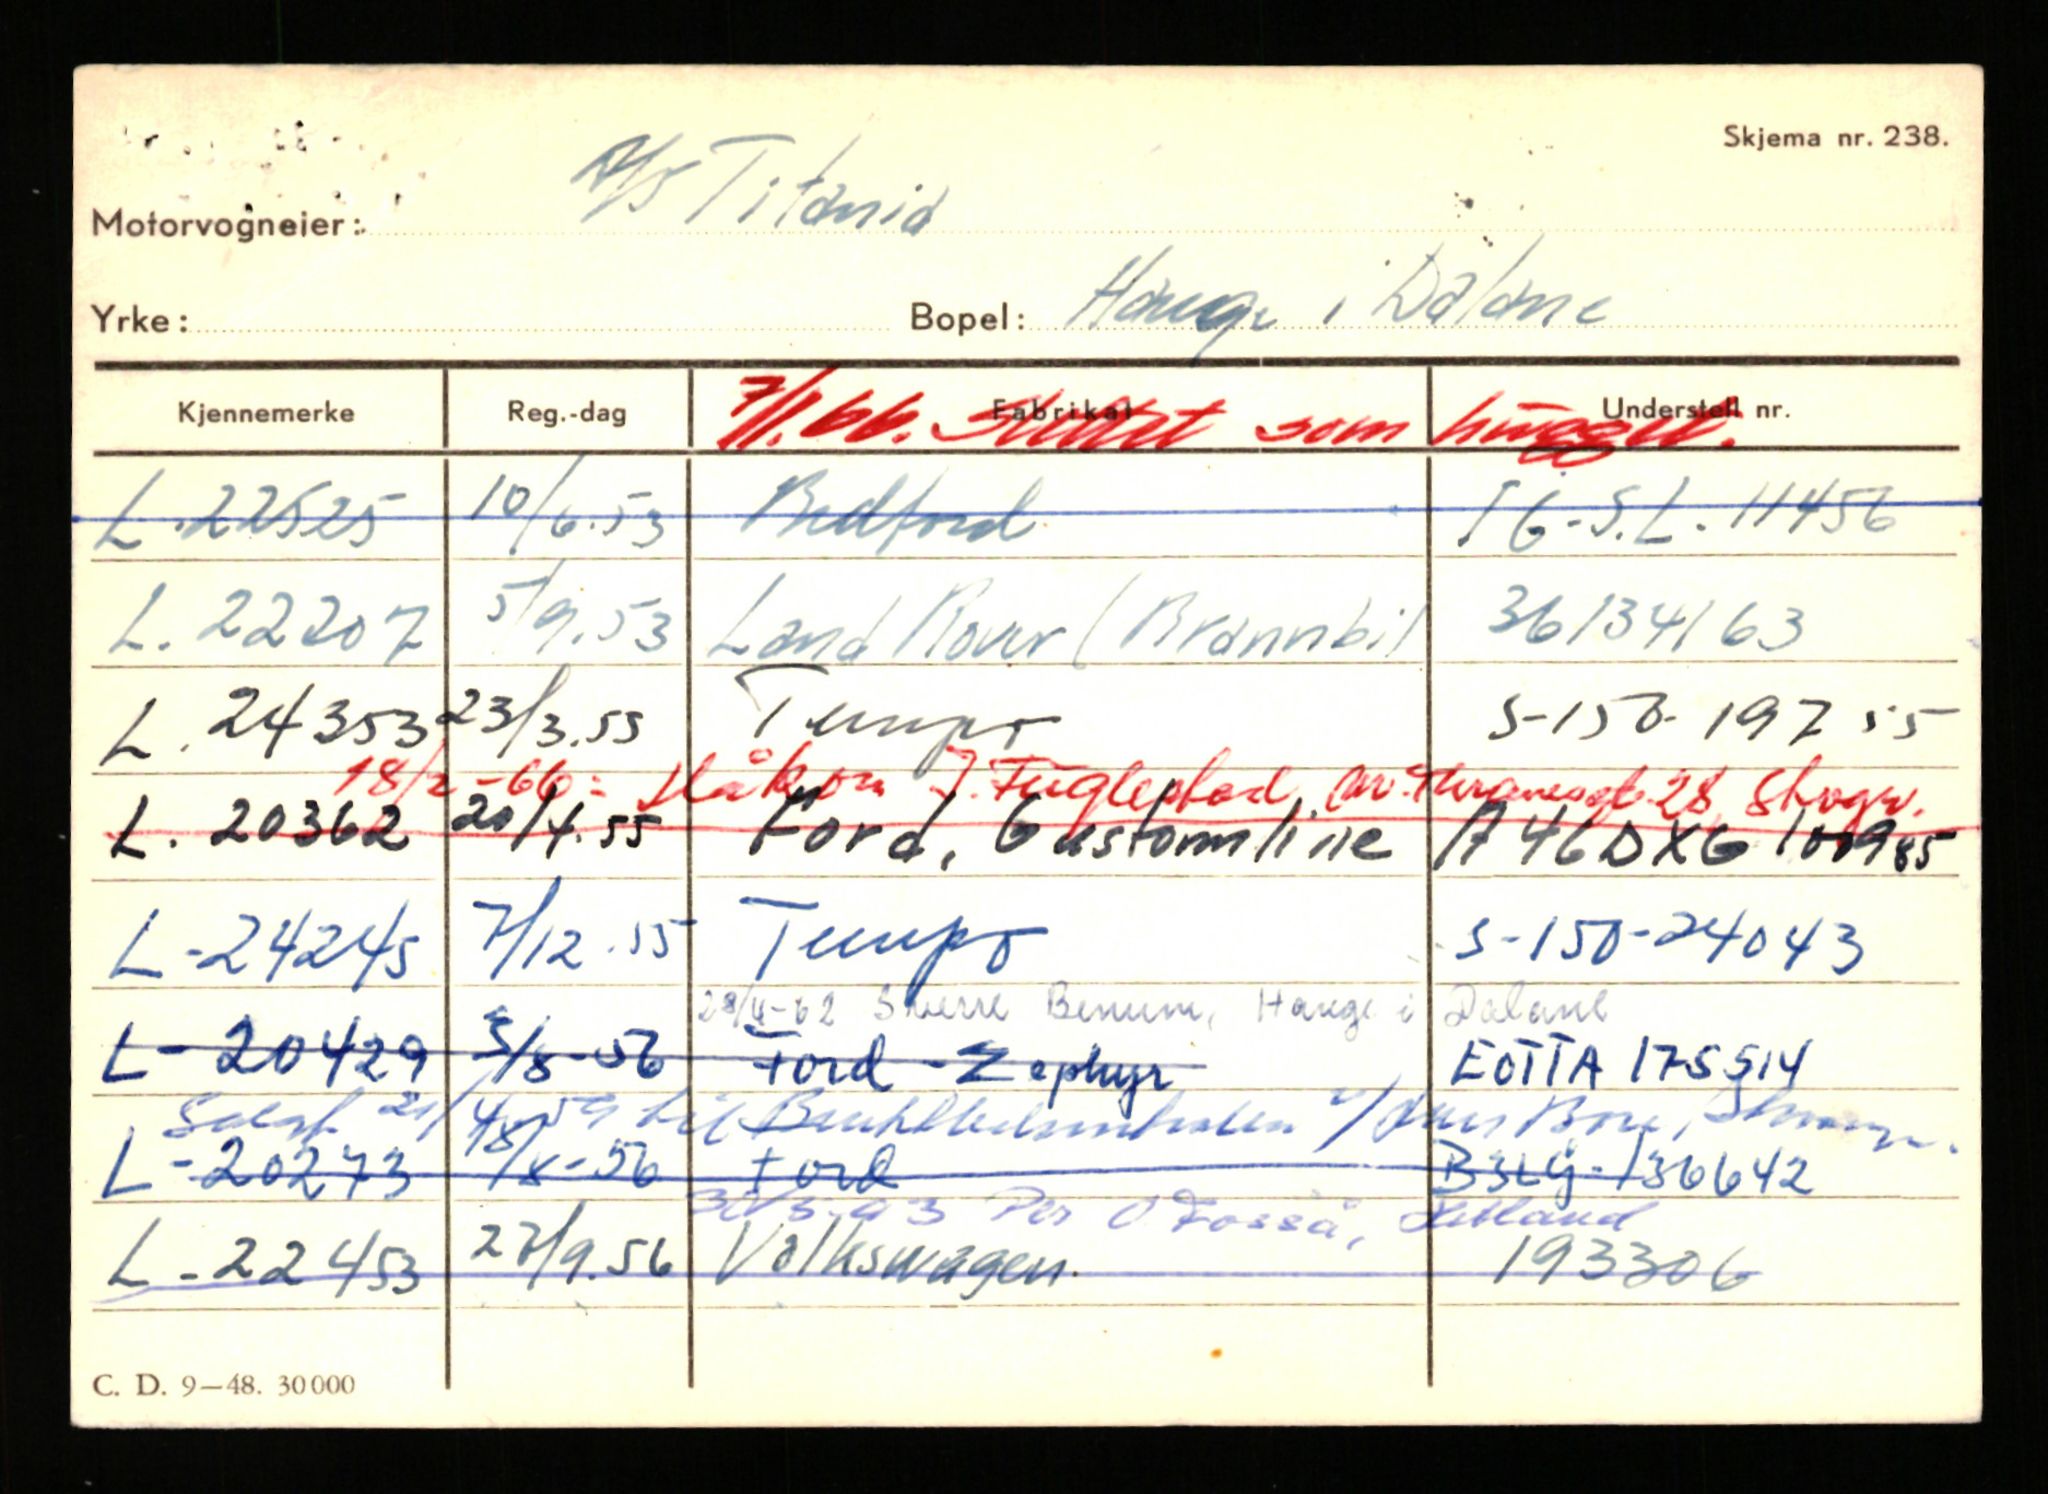 Skjema nr. 238.
Motorvogneier: A/S Titania
Yrke: Bopel: Hauge i Dalane
Kjennemerke Reg.-dag Fabrikat Understell nr.
7/1.66. Slettet som hugget.
L.22525 10/6.53 Bedford T6-S.L.11456
L.22207 5/9.53 Land Rover (Brannbil 36134163
L.24353 23/3.55 Tempo S-150-19755
18/2-66: Håkon J. Fuglestad, M. Thranesgt. 28, Stvgr.
L.20362 20/4.55 Ford, Customline A46DXG100985
L-24245 7/12.55 Tempo S-150-24043
28/4-62 Sverre Benum, Hauge i Dalane
L-20429 5/8-56 Ford-Zephyr EOTTA 175514
Solgt 21/4 59 til v/ Bore,
L-20273 18/8-56 Ford B3LG-136642
30/5.63 Per O Fosså, Hetland
L-22453 27/9.56 Volkswagen. 193306
C. D. 9—48. 30000